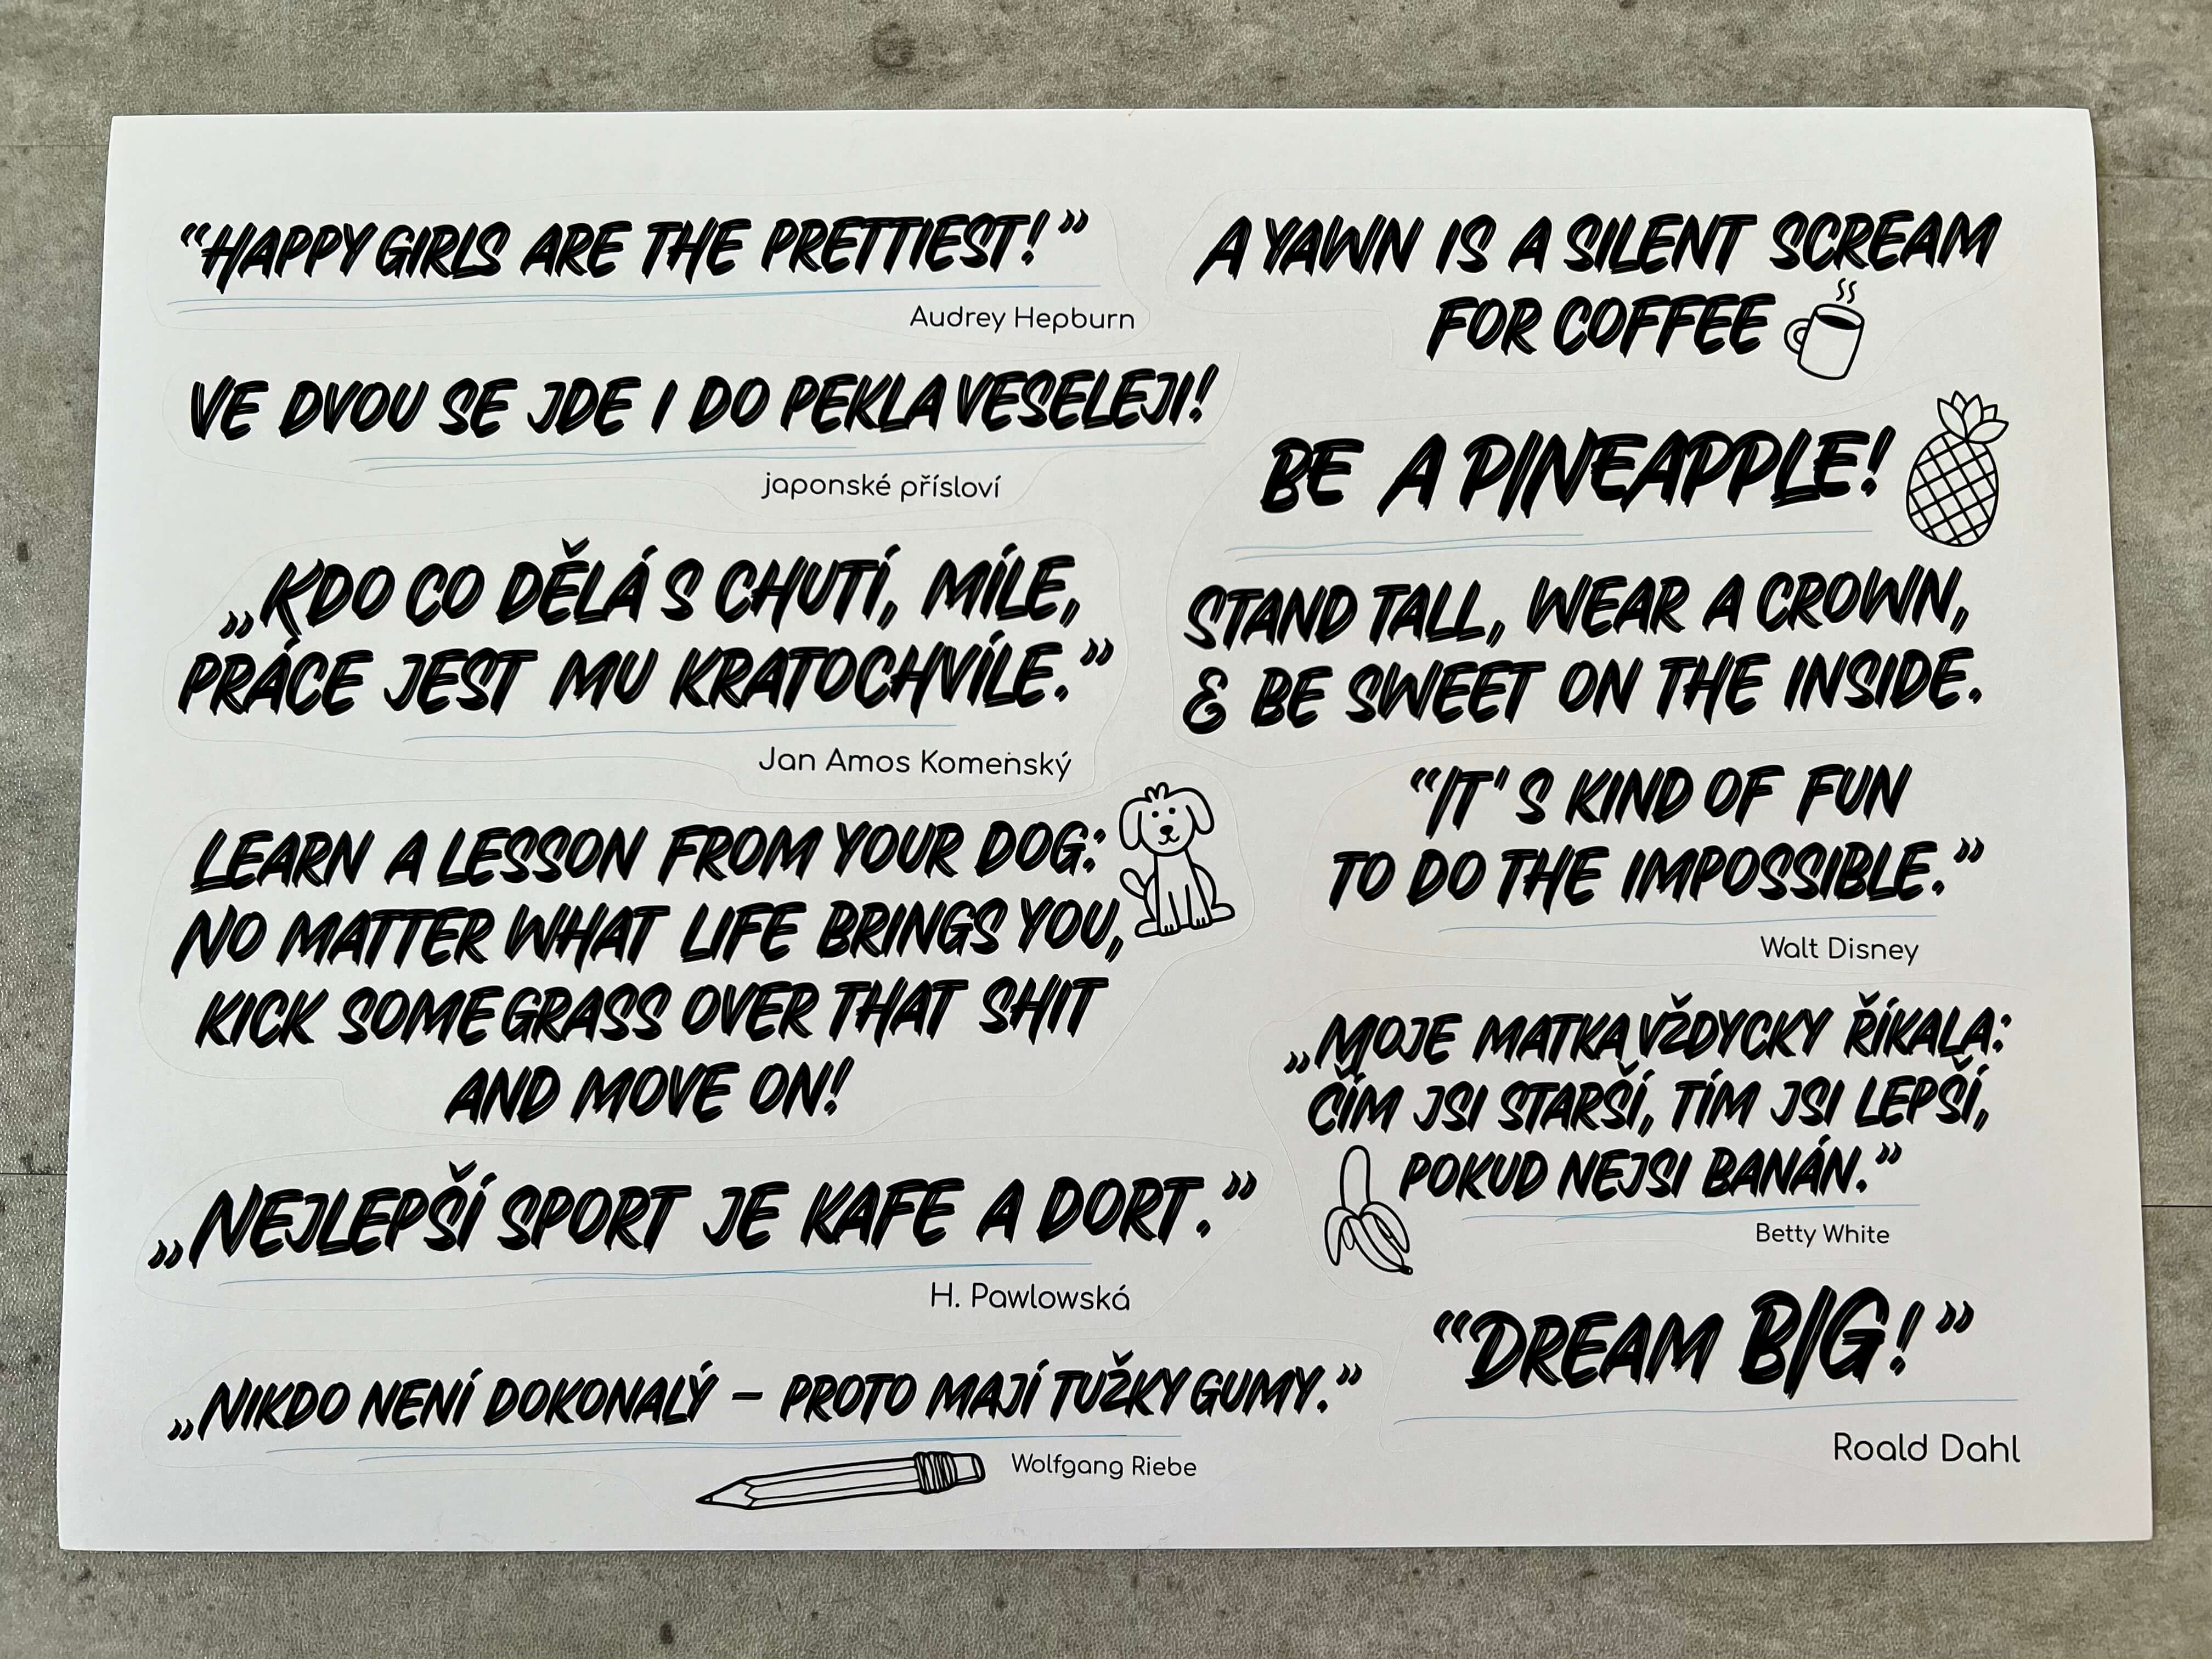 “HAPPY GIRLS ARE THE PRETTIEST!”
Audrey Hepburn
VE DVOU SE JDE I DO PEKLA VESELEJI!
japonské přísloví
„KDO CO DĚLÁ S CHUTÍ, MÍLE,
PRÁCE JEST MU KRATOCHVÍLE.”
Jan Amos Komeńský
LEARN A LESSON FROM YOUR DOG:
NO MATTER WHAT LIFE BRINGS YOU,
KICK SOME GRASS OVER THAT SHIT
AND MOVE ON!
„NEJLEPŠÍ SPORT JE KAFE A DORT.”
H. Pawlowská
„NIKDO NENÍ DOKONALÝ – PROTO MAJÍ TUŽKY GUMY.”
Wolfgang Riebe
A YAWN IS A SILENT SCREAM
FOR COFFEE
BE A PINEAPPLE!
STAND TALL, WEAR A CROWN,
& BE SWEET ON THE INSIDE.
“IT'S KIND OF FUN
TO DO THE IMPOSSIBLE.”
Walt Disney
„MOJE MATKA VŽDYCKY ŘÍKALA:
ČÍM JSI STARŠÍ, TÍM JSI LEPŠÍ,
POKUD NEJSI BANÁN.”
Betty White
“DREAM BIG!”
Roald Dahl